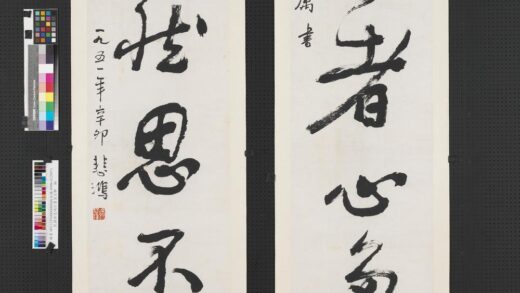 属書
者心
然思不
一九五一年辛卯 悲鴻